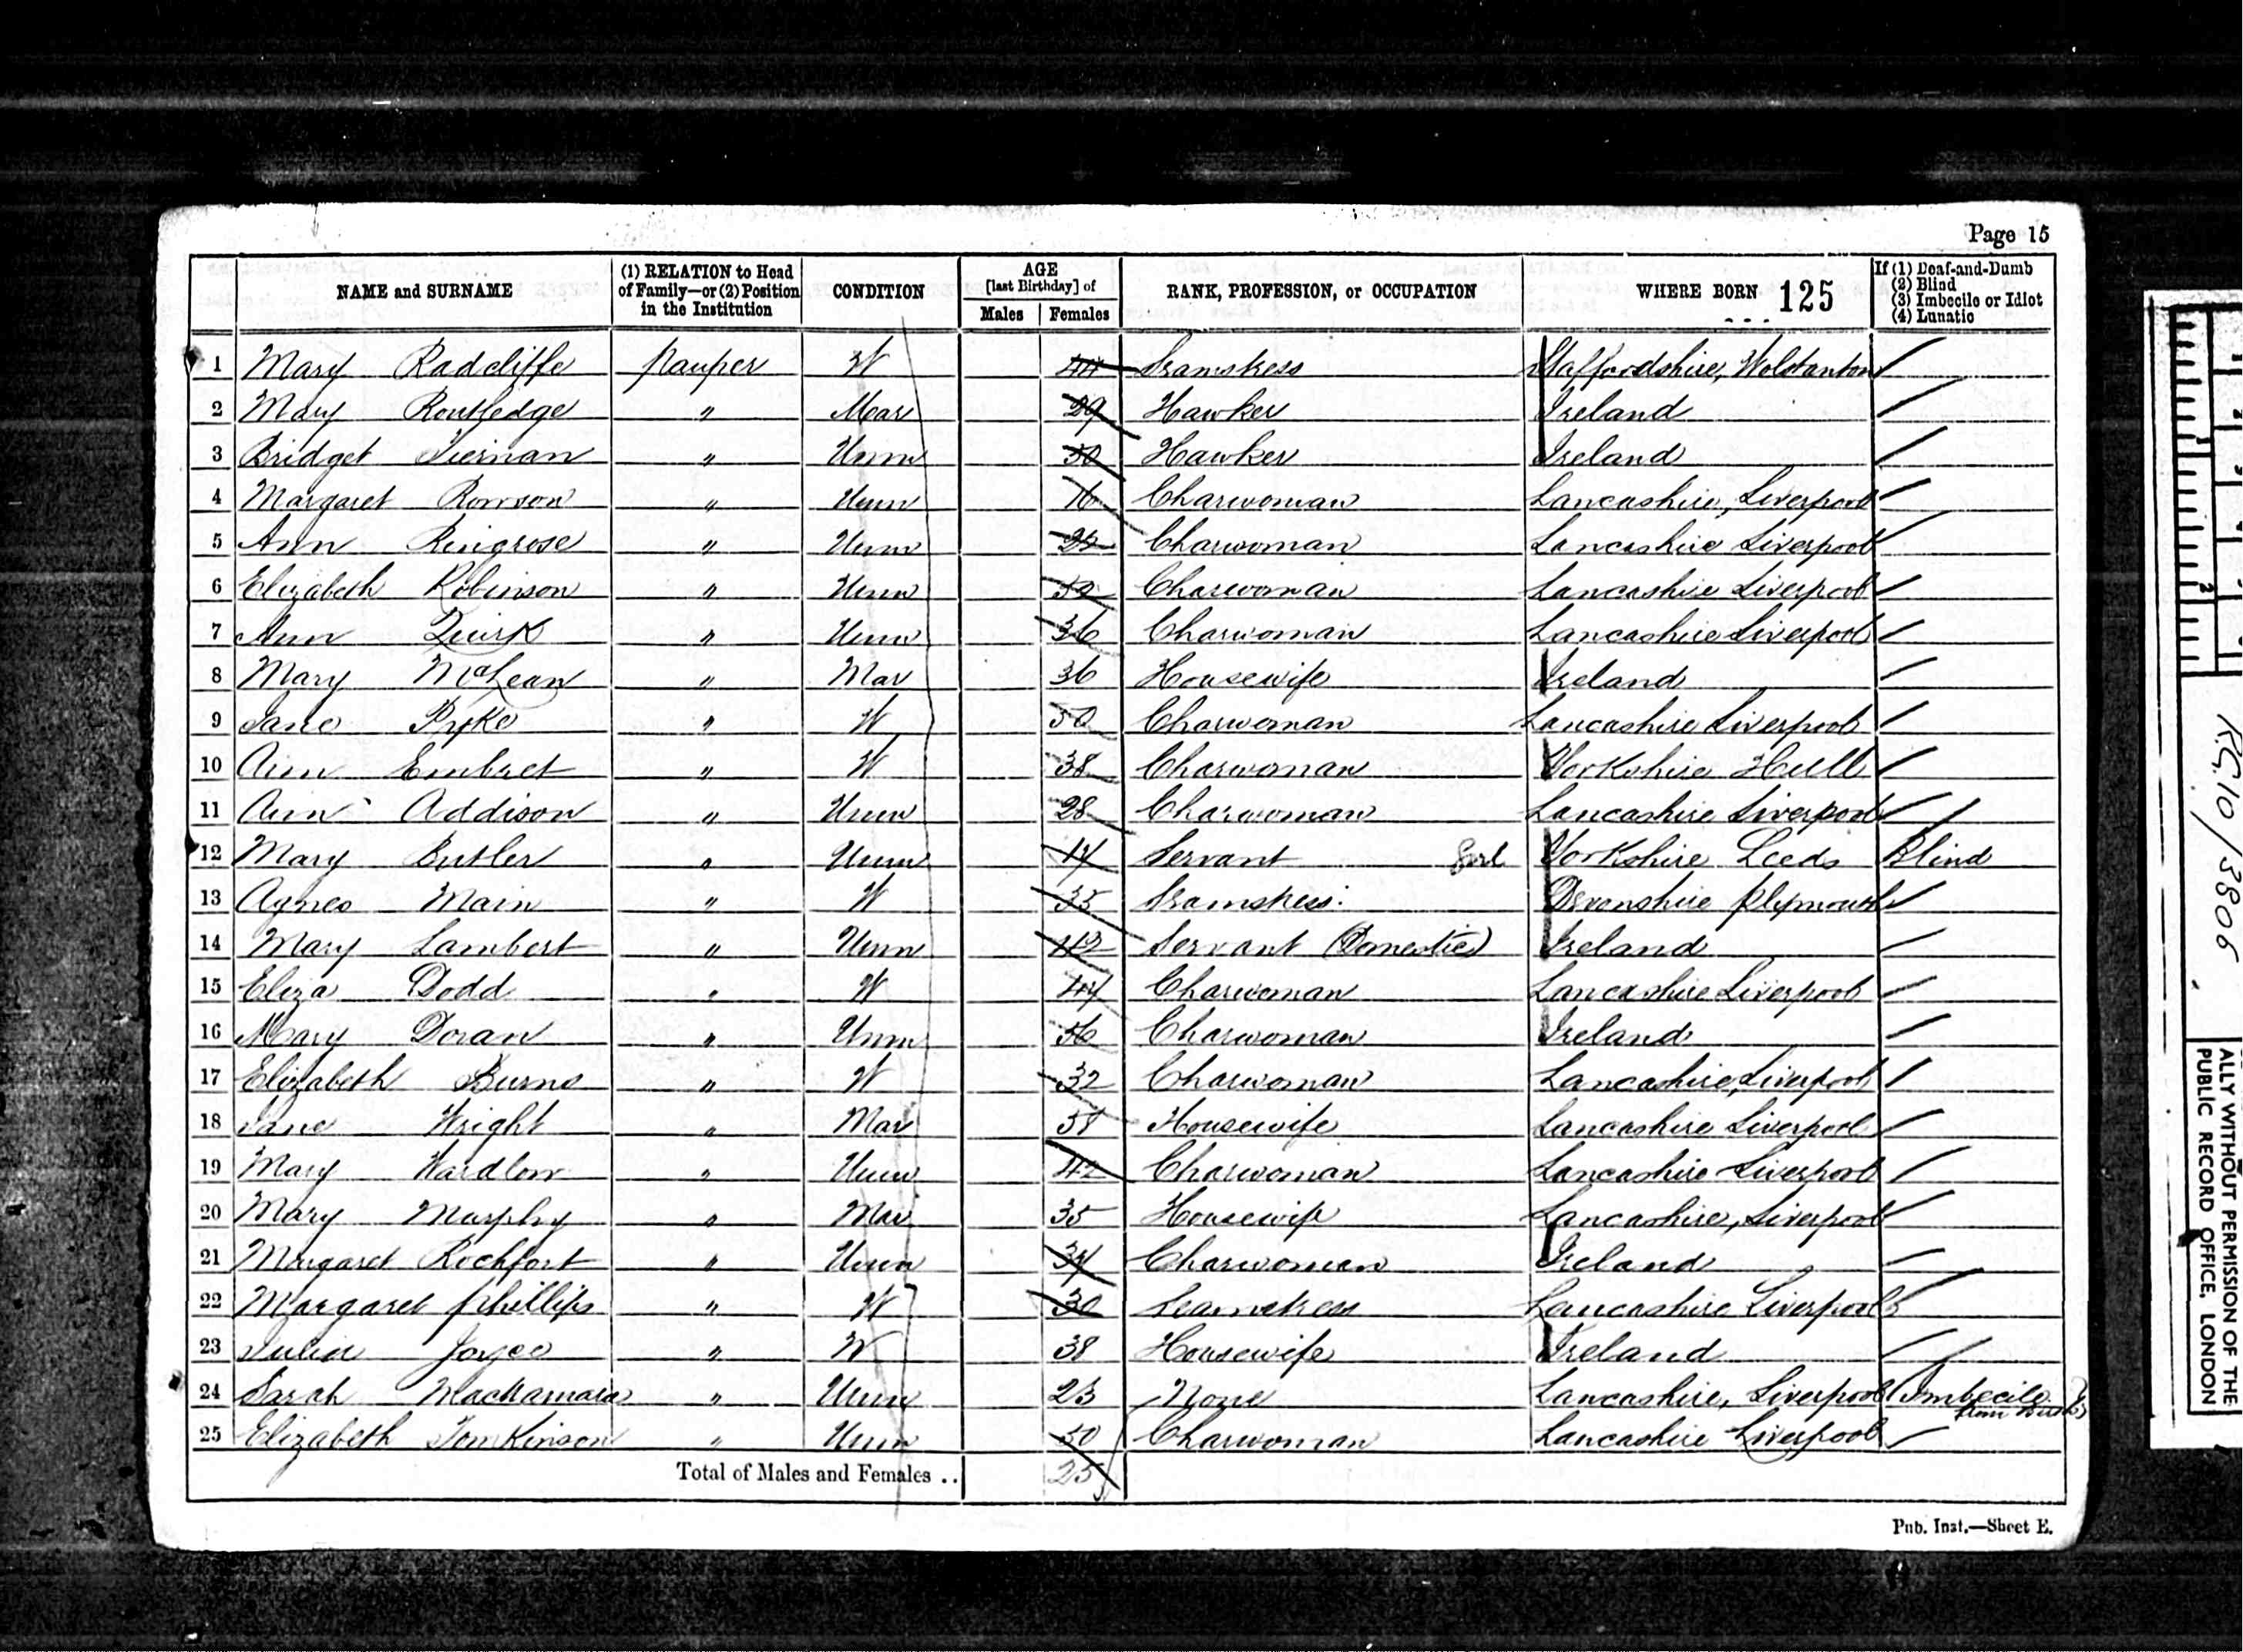 Page 15
NAME and SURNAME (1) RELATION to Head of Family—or (2) Position in the Institution CONDITION AGE [last Birthday] of Males Females RANK, PROFESSION, or OCCUPATION WHERE BORN 125 If (1) Deaf-and-Dumb (2) Blind (3) Imbecile or Idiot (4) Lunatic
1 Mary Radcliffe pauper W 44 Seamstress Staffordshire, Wolstanton
2 Mary Routledge " Mar 29 Hawker Ireland
3 Bridget Tiernan " Unm 50 Hawker Ireland
4 Margaret Rowson " Unm 16 Charwoman Lancashire, Liverpool
5 Ann Ringrose " Unm 22 Charwoman Lancashire Liverpool
6 Elizabeth Robinson " Unm Charwoman Lancashire Liverpool
7 Ann Quirk " Unm 36 Charwoman Lancashire Liverpool
8 Mary McLean " Mar 36 Housewife Ireland
9 Jane Pyke " W 50 Charwoman Lancashire Liverpool
10 Ann Embret " W 38 Charwoman Yorkshire Hull
11 Ann Addison " Unm 28 Charwoman Lancashire Liverpool
12 Mary Butler " Unm 17 Servant Girl Yorkshire Leeds Blind
13 Agnes Main " W 35 Seamstress Devonshire Plymouth
14 Mary Lambert " Unm Servant (Domestic) Ireland
15 Eliza Dodd " W 44 Charwoman Lancashire Liverpool
16 Mary Doran " Unm 56 Charwoman Ireland
17 Elizabeth Burns " W 32 Charwoman Lancashire, Liverpool
18 Jane Wright " Mar 58 Housewife Lancashire Liverpool
19 Mary Wardlow " Unm 42 Charwoman Lancashire Liverpool
20 Mary Murphy " Mar 35 Housewife Lancashire, Liverpool
21 Margaret Rochfort " Unm 34 Charwoman Ireland
22 Margaret Phillips " W 30 Seamstress Lancashire Liverpool
23 Julia Joyce " W 38 Housewife Ireland
24 Sarah MacNamara " Unm 23 None Lancashire, Liverpool Imbecile from Birth
25 Elizabeth TomKinson " Unm 50 Charwoman Lancashire Liverpool
Total of Males and Females .. 25
Pub. Inst.—Sheet E.
R.G. 10/3806
ALLY WITHOUT PERMISSION OF THE
PUBLIC RECORD OFFICE, LONDON